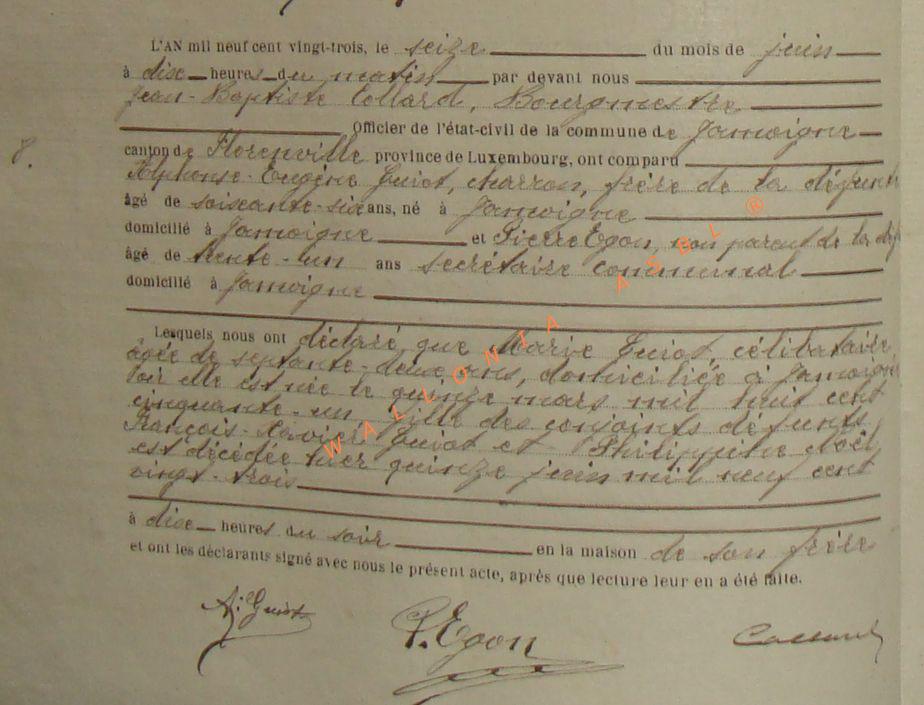 L'AN mil neuf cent vingt-trois, le seize du mois de juin
à dix heures du matin par devant nous
Jean-Baptiste Collard, Bourgmestre
Officier de l'état-civil de la commune de Jamoigne
8.
canton de Florenville province de Luxembourg, ont comparu
Alphonse-Eugène Guiot, charron, frère de la défunte
âgé de soixante-six ans, né à Jamoigne
domicilié à Jamoigne et Pierre Egon, non parent de la déf
âgé de trente-un ans secrétaire communal
domicilié à Jamoigne
Lesquels nous ont déclaré que Marie Guiot, célibataire
âgée de septante-deux ans, domiciliée à Jamoigne
où elle est née le quinze mars mil huit cent
cinquante-un, fille des conjoints défunts
François-Xavier Guiot et Philippine Noël
est décédée hier quinze juin mil neuf cent
vingt-trois
à dix heures du soir en la maison de son frère
et ont les déclarants signé avec nous le présent acte, après que lecture leur en a été faite.
A. Guiot P. Egon Collard
WALLONIA ASBL ®